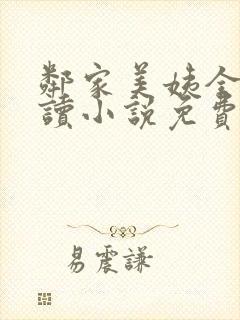 鄰家美姨全
讀小說免費
易震謙